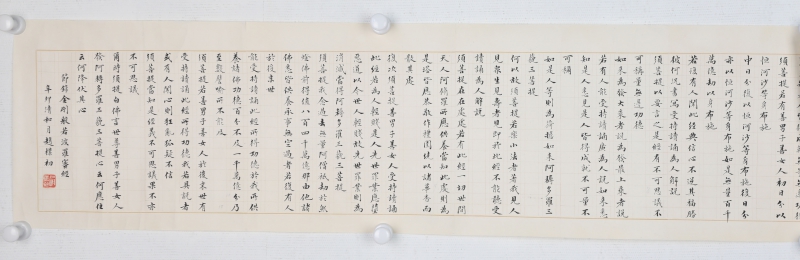 須菩提若有善男子善女人初日分以
恒河沙等身布施
中日分復以恒河沙等身布施後日分
亦以恒河沙等身布施如是無量百千
萬億劫以身布施
若復有人聞此經典信心不逆其福勝
彼何況書寫受持讀誦為人解說
須菩提以要言之是經有不可思議不
可稱量無邊功德
如來為發大乘者說為發最上乘者說
若有人能受持讀誦廣為人說如來悉
知是人悉見是人皆得成就不可量不
可稱
如是人等則為荷擔如來阿耨多羅三
藐三菩提
何以故須菩提若樂小法者著我見人
見眾生見壽者見即於此經不能聽受
讀誦為人解說
須菩提在在處處若有此經一切世間
天人阿修羅所應供養當知此處則為
是塔皆應恭敬作禮圍繞以諸華香而
散其處
復次須菩提善男子善女人受持讀誦
此經若為人輕賤是人先世罪業應墮
惡道以今世人輕賤故先世罪業則為
消滅當得阿耨多羅三藐三菩提
須菩提我念過去無量阿僧祇劫於然
燈佛前得值八百四千萬億那由他諸
佛悉皆供養承事無空過者若復有人
於後末世
能受持讀誦此經所得功德於我所供
養諸佛功德百分不及一千萬億分乃
至算數譬喻所不能及
須菩提若善男子善女人於後末世有
受持讀誦此經所得功德我若具說者
或有人聞心則狂亂狐疑不信
須菩提當知是經義不可思議果不亦
不可思議
爾時須菩提白佛言世尊善男子善女人
發阿耨多羅三藐三菩提心云何應住
云何降伏其心
節錄金剛般若波羅蜜經
辛卯清和月趙樸初